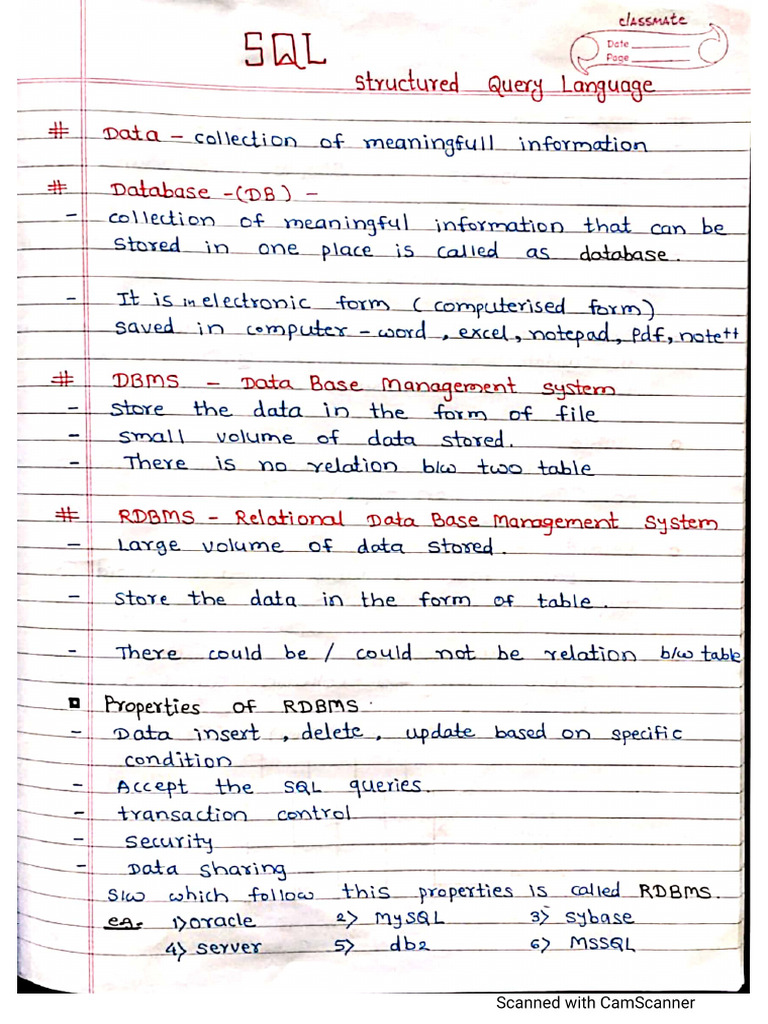 classmate
SQL
Date
Page
Structured Query Language
# Data - collection of meaningfull information
# Database -(DB) -
- collection of meaningful information that can be
stored in one place is called as database.
- It is in electronic form (computerised form)
saved in computer - word, excel, notepad, Pdf, note++
# DBMS - Data Base Management system
- store the data in the form of file
- small volume of data stored.
- There is no relation b/w two table
# RDBMS - Relational Data Base Management System
- Large volume of data stored.
- Store the data in the form of table.
- There could be / could not be relation b/w table
Properties of RDBMS.
- Data insert, delete, update based on specific
condition
- Accept the SQL queries.
- transaction control
- security
- Data sharing
S/w which follow this properties is called RDBMS.
eg. 1) oracle 2) MySQL 3) Sybase
4) server 5) db2 6) MSSQL
Scanned with CamScanner